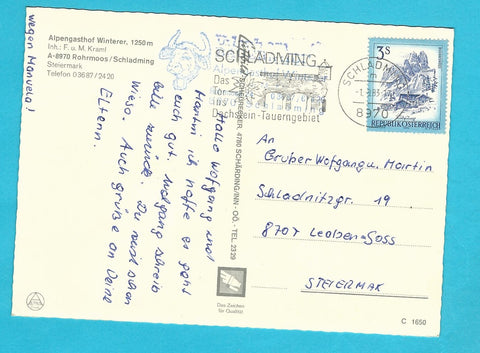 Alpengasthof Winterer, 1250 m
Inh.: F. u. M. Kraml
A-8970 Rohrmoos/Schladming
Steiermark
Telefon 03687/2420
wegen Manuela!
Hallo Wolfgang und
Martin ich hoffe es geht
euch gut. Wolfgang schreib
bitte zurück. Du weist schon
Wieso. Auch grüße an Deine
Eltern.
SCHLADMING
Das
Tor
ins
Dachstein-Tauerngebiet
SCHLADMING
8970
3 S
REPUBLIK ÖSTERREICH
4780 SCHÄRDING/INN - OÖ. - TEL. 2329
An
Gruber Wolfgang u. Martin
Schladnitzgr. 19
8704 Leoben-Göss
STEIERMAK
Das Zeichen
für Qualität
C 1650